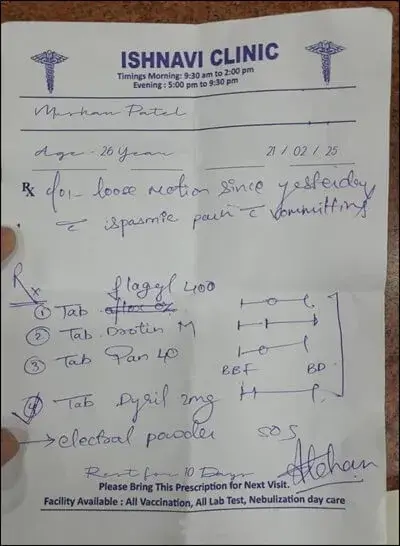 ISHNAVI CLINIC
Timings Morning: 9:30 am to 2:00 pm
Evening : 5:00 pm to 9:30 pm
Patel
Age - 26 Year 21 / 02 / 25
Rx c/o loose motion since yesterday
c̄ ispasmic pain c̄ vommitting
Rx flagyl 400
① Tab
② Tab Drotin M
③ Tab Pan 40
BBF BD
④ Tab 2mg
→ electral powder SOS
Rest for 10 Days
Please Bring This Prescription for Next Visit.
Facility Available : All Vaccination, All Lab Test, Nebulization day care